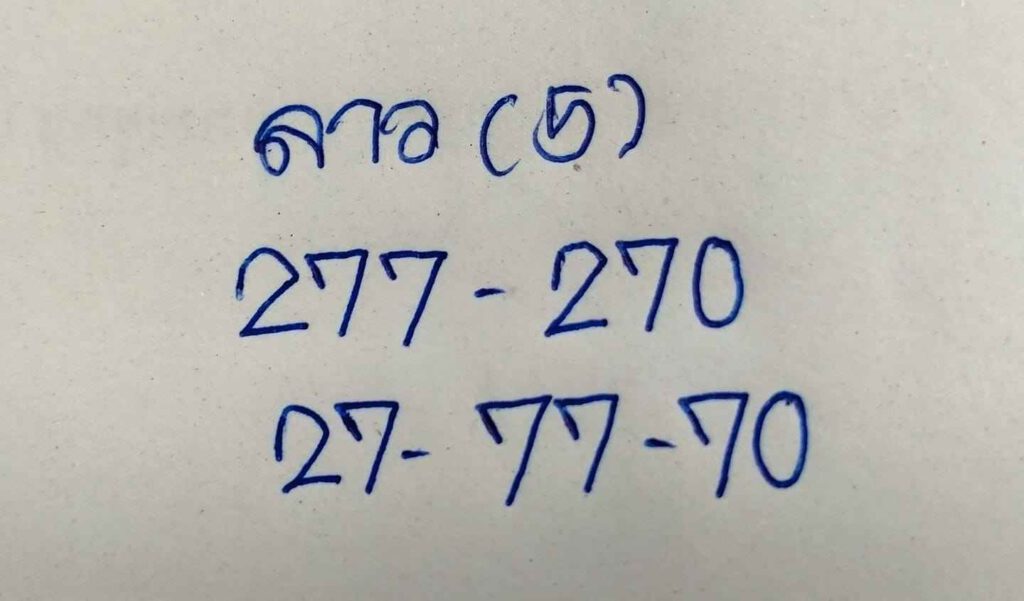 ลาว (5)
277 - 270
27 - 77 - 70